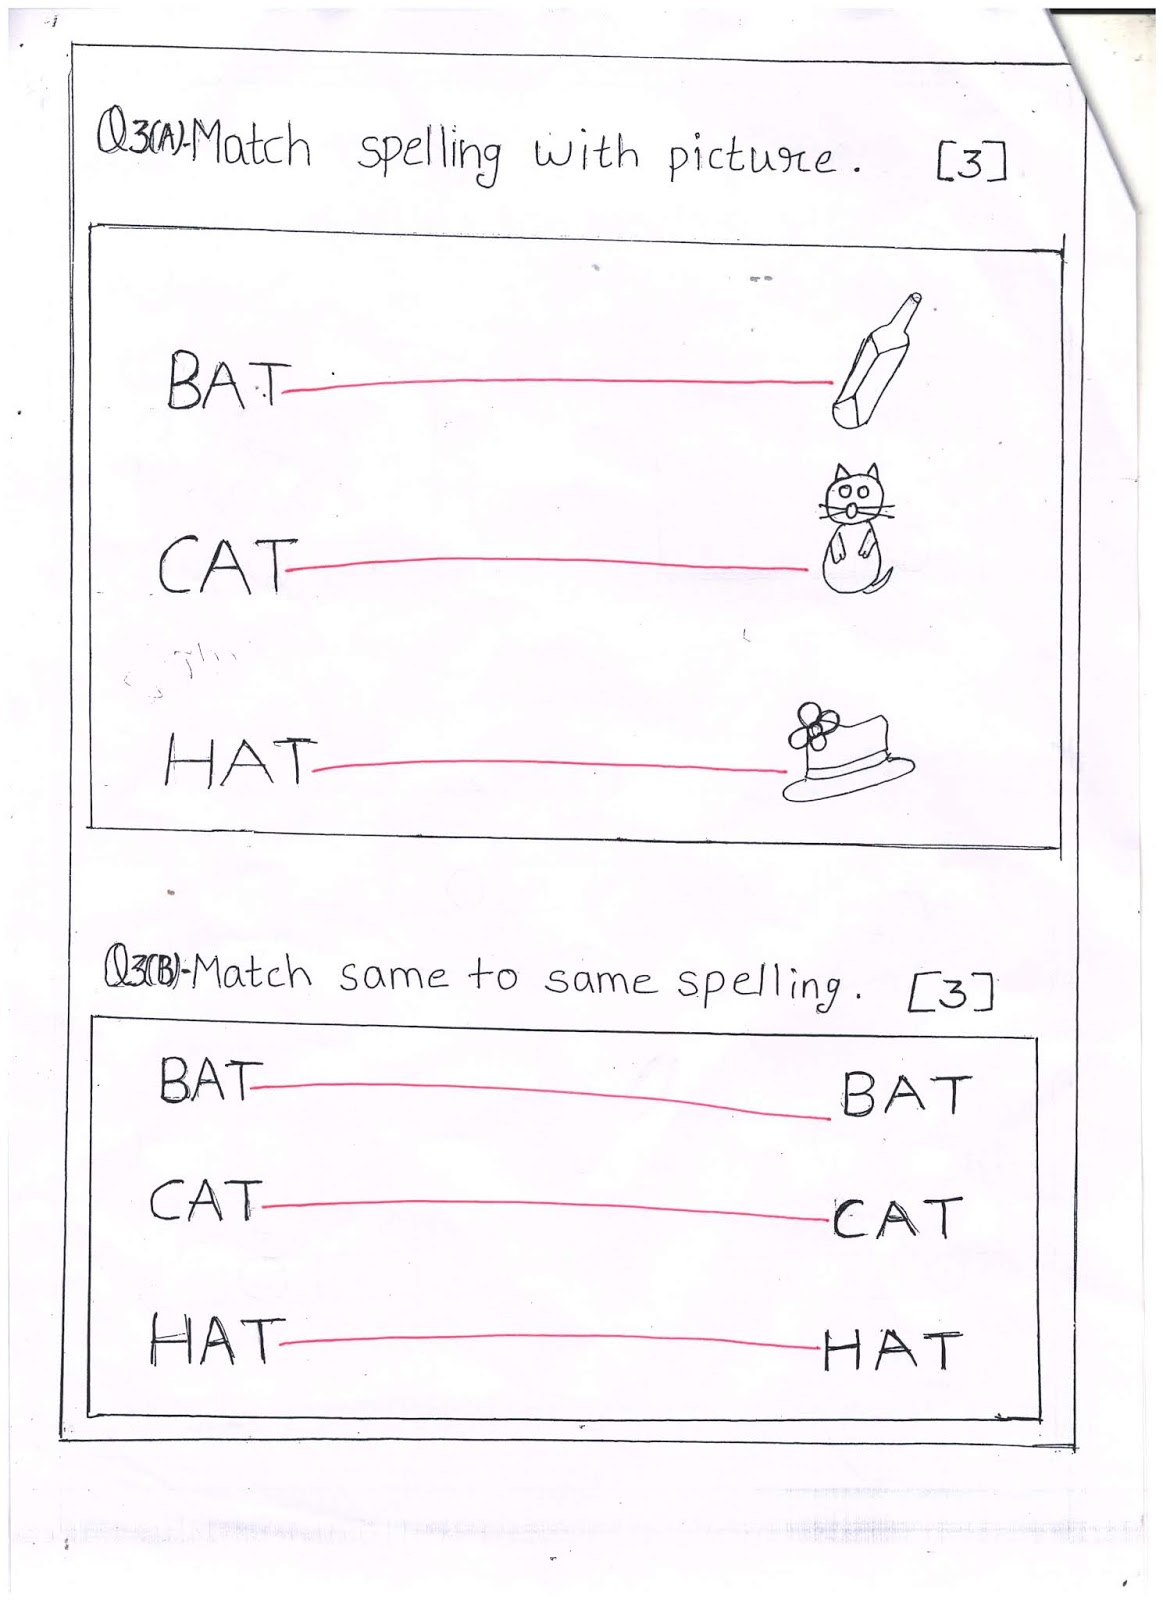 Q3(A)-Match spelling with picture. [3]
BAT
CAT
HAT
Q3(B)-Match same to same spelling. [3]
BAT BAT
CAT CAT
HAT HAT